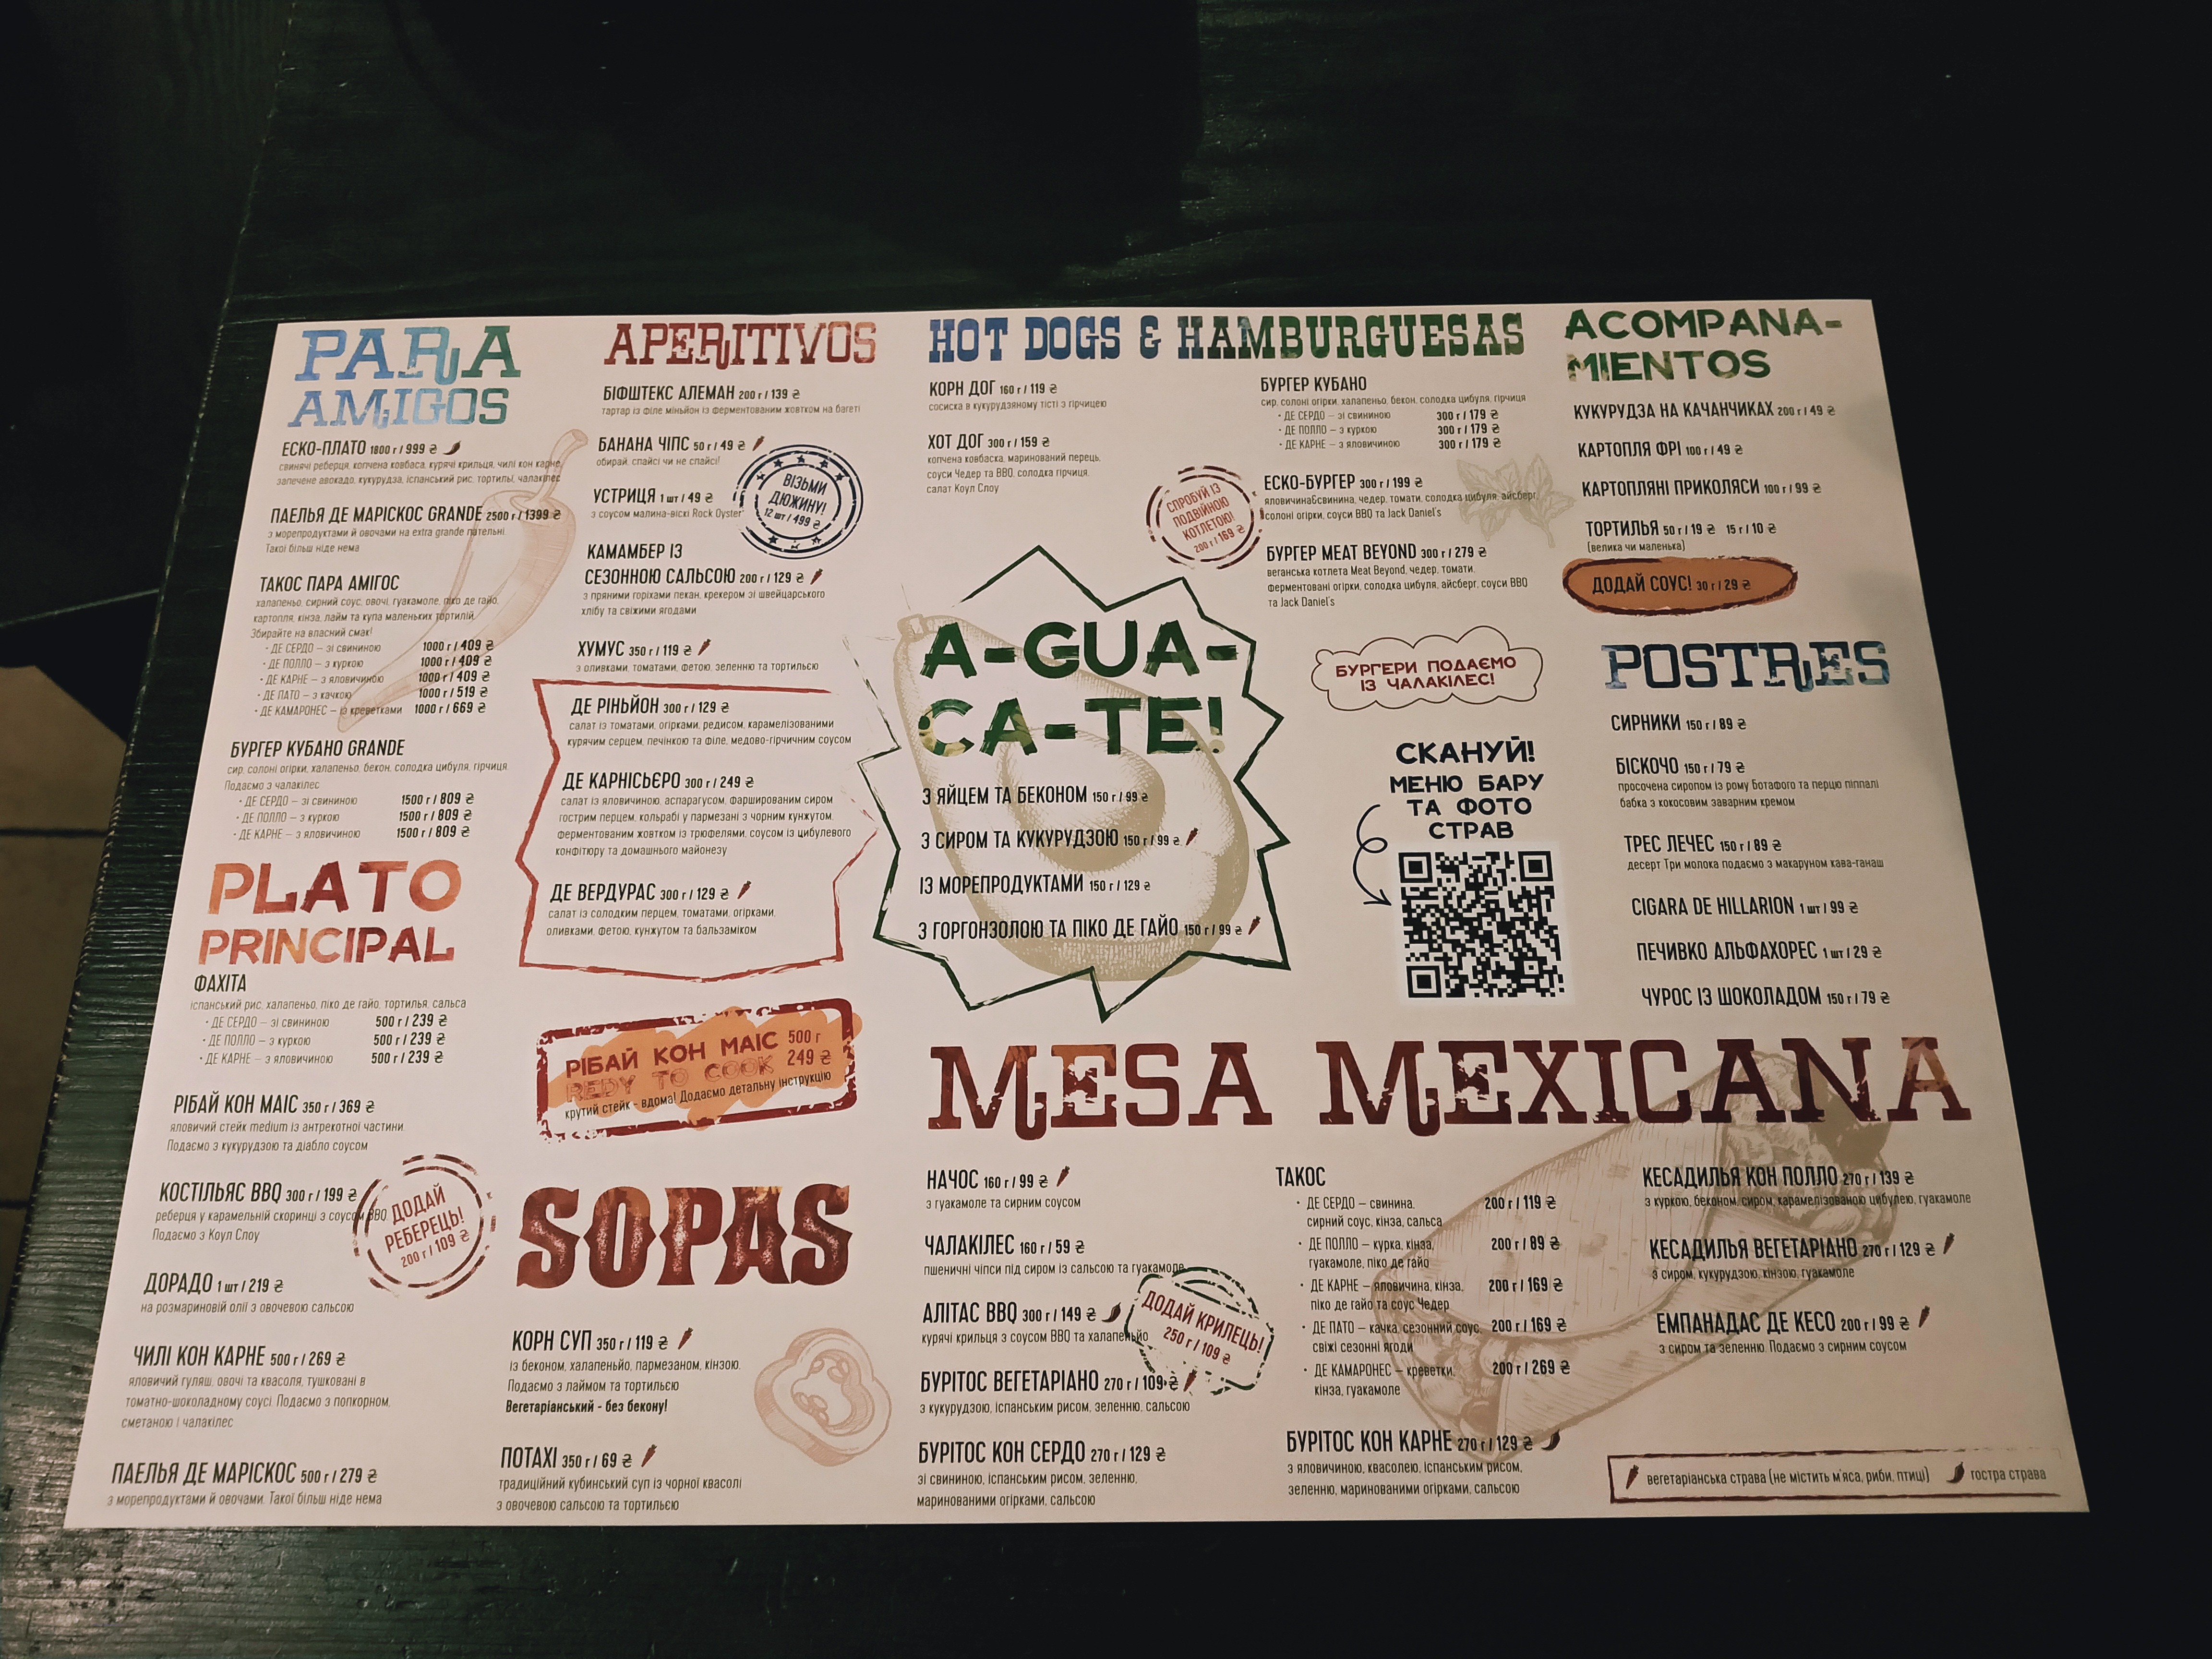 PARA
AMIGOS
ЕСКО-ПЛАТО 1800 г / 999 ₴
свинячі реберця, копчена ковбаса, курячі крильця, чилі кон карне,
запечене авокадо, кукурудза, іспанський рис, тортильї, чалакілес
ПАЕЛЬЯ ДЕ МАРІСКОС GRANDE 2500 г / 1399 ₴
з морепродуктами й овочами на extra grande пательні.
Такої більш ніде нема
ТАКОС ПАРА АМІГОС
халапеньо, сирний соус, овочі, гуакамоле, піко де гайо,
картопля, кінза, лайм та купа маленьких тортилій.
Збирайте на власний смак!
• ДЕ СЕРДО – зі свининою 1000 г / 409 ₴
• ДЕ ПОЛЛО – з куркою 1000 г / 409 ₴
• ДЕ КАРНЕ – з яловичиною 1000 г / 409 ₴
• ДЕ ПАТО – з качкою 1000 г / 519 ₴
• ДЕ КАМАРОНЕС – із креветками 1000 г / 669 ₴
БУРГЕР КУБАНО GRANDE
сир, солоні огірки, халапеньо, бекон, солодка цибуля, гірчиця
Подаємо з чалакілес
• ДЕ СЕРДО – зі свининою 1500 г / 809 ₴
• ДЕ ПОЛЛО – з куркою 1500 г / 809 ₴
• ДЕ КАРНЕ – з яловичиною 1500 г / 809 ₴
PLATO
PRINCIPAL
ФАХІТА
іспанський рис, халапеньо, піко де гайо, тортилья, сальса
• ДЕ СЕРДО – зі свининою 500 г / 239 ₴
• ДЕ ПОЛЛО – з куркою 500 г / 239 ₴
• ДЕ КАРНЕ – з яловичиною 500 г / 239 ₴
РІБАЙ КОН МАІС 350 г / 369 ₴
яловичий стейк medium із антрекотної частини.
Подаємо з кукурудзою та діабло соусом
КОСТІЛЬЯС BBQ 300 г / 199 ₴
реберця у карамельній скоринці з соусом BBQ.
Подаємо з Коул Слоу
ДОДАЙ
РЕБЕРЕЦЬ!
200 г / 109 ₴
ДОРАДО 1 шт / 219 ₴
на розмариновій олії з овочевою сальсою
ЧИЛІ КОН КАРНЕ 500 г / 269 ₴
яловичий гуляш, овочі та квасоля, тушковані в
томатно-шоколадному соусі. Подаємо з попкорном,
сметаною і чалакілес
ПАЕЛЬЯ ДЕ МАРІСКОС 500 г / 279 ₴
з морепродуктами й овочами. Такої більш ніде нема
APERITIVOS
БІФШТЕКС АЛЕМАН 200 г / 139 ₴
тартар із філе міньйон із ферментованим жовтком на багеті
БАНАНА ЧІПС 50 г / 49 ₴
обирай, спайсі чи не спайсі!
УСТРИЦЯ 1 шт / 49 ₴
з соусом малина-віскі Rock Oyster
ВІЗЬМИ
ДЮЖИНУ!
12 шт / 499 ₴
КАМАМБЕР ІЗ
СЕЗОННОЮ САЛЬСОЮ 200 г / 129 ₴
з пряними горіхами пекан, крекером зі швейцарського
хлібу та свіжими ягодами
ХУМУС 350 г / 119 ₴
з оливками, томатами, фетою, зеленню та тортильєю
ДЕ РІНЬЙОН 300 г / 129 ₴
салат із томатами, огірками, редисом, карамелізованими
курячим серцем, печінкою та філе, медово-гірчичним соусом
ДЕ КАРНІСЬЄРО 300 г / 249 ₴
салат із яловичиною, аспарагусом, фаршированим сиром
гострим перцем, кольрабі у пармезані з чорним кунжутом,
ферментованим жовтком із трюфелями, соусом із цибулевого
конфітюру та домашнього майонезу
ДЕ ВЕРДУРАС 300 г / 129 ₴
салат із солодким перцем, томатами, огірками,
оливками, фетою, кунжутом та бальзаміком
РІБАЙ КОН МАІС 500 г
REDY TO COOK 249 ₴
крутий стейк - вдома! Додаємо детальну інструкцію
SOPAS
КОРН СУП 350 г / 119 ₴
із беконом, халапеньйо, пармезаном, кінзою.
Подаємо з лаймом та тортильєю
Вегетаріанський - без бекону!
ПОТАХІ 350 г / 69 ₴
традиційний кубинський суп із чорної квасолі
з овочевою сальсою та тортильєю
HOT DOGS & HAMBURGUESAS
КОРН ДОГ 160 г / 119 ₴
сосиска в кукурудзяному тісті з гірчицею
ХОТ ДОГ 300 г / 159 ₴
копчена ковбаска, маринований перець,
соуси Чедер та BBQ, солодка гірчиця,
салат Коул Слоу
СПРОБУЙ ІЗ
ПОДВІЙНОЮ
КОТЛЕТОЮ!
200 г / 169 ₴
БУРГЕР КУБАНО
сир, солоні огірки, халапеньо, бекон, солодка цибуля, гірчиця
• ДЕ СЕРДО – зі свининою 300 г / 179 ₴
• ДЕ ПОЛЛО – з куркою 300 г / 179 ₴
• ДЕ КАРНЕ – з яловичиною 300 г / 179 ₴
ЕСКО-БУРГЕР 300 г / 199 ₴
яловичина&свинина, чедер, томати, солодка цибуля, айсберг,
солоні огірки, соуси BBQ та Jack Daniel's
БУРГЕР MEAT BEYOND 300 г / 279 ₴
веганська котлета Meat Beyond, чедер, томати,
ферментовані огірки, солодка цибуля, айсберг, соуси BBQ
та Jack Daniel's
БУРГЕРИ ПОДАЄМО
ІЗ ЧАЛАКІЛЕС!
A-GUA-
CA-TE!
З ЯЙЦЕМ ТА БЕКОНОМ 150 г / 99 ₴
З СИРОМ ТА КУКУРУДЗОЮ 150 г / 99 ₴
ІЗ МОРЕПРОДУКТАМИ 150 г / 129 ₴
З ГОРГОНЗОЛОЮ ТА ПІКО ДЕ ГАЙО 150 г / 99 ₴
СКАНУЙ!
МЕНЮ БАРУ
ТА ФОТО
СТРАВ
ACOMPANA-
MIENTOS
КУКУРУДЗА НА КАЧАНЧИКАХ 200 г / 49 ₴
КАРТОПЛЯ ФРІ 100 г / 49 ₴
КАРТОПЛЯНІ ПРИКОЛЯСИ 100 г / 99 ₴
ТОРТИЛЬЯ 50 г / 19 ₴ 15 г / 10 ₴
(велика чи маленька)
ДОДАЙ СОУС! 30 г / 29 ₴
POSTRES
СИРНИКИ 150 г / 89 ₴
БІСКОЧО 150 г / 79 ₴
просочена сиропом із рому Ботафого та перцю піппалі
бабка з кокосовим заварним кремом
ТРЕС ЛЕЧЕС 150 г / 89 ₴
десерт Три молока подаємо з макаруном кава-ганаш
CIGARA DE HILLARION 1 шт / 99 ₴
ПЕЧИВКО АЛЬФАХОРЕС 1 шт / 29 ₴
ЧУРОС ІЗ ШОКОЛАДОМ 150 г / 79 ₴
MESA MEXICANA
НАЧОС 160 г / 99 ₴
з гуакамоле та сирним соусом
ЧАЛАКІЛЕС 160 г / 59 ₴
пшеничні чіпси під сиром із сальсою та гуакамоле
АЛІТАС BBQ 300 г / 149 ₴
курячі крильця з соусом BBQ та халапеньйо
ДОДАЙ КРИЛЕЦЬ!
250 г / 109 ₴
БУРІТОС ВЕГЕТАРІАНО 270 г / 109 ₴
з кукурудзою, іспанським рисом, зеленню, сальсою
БУРІТОС КОН СЕРДО 270 г / 129 ₴
зі свининою, іспанським рисом, зеленню,
маринованими огірками, сальсою
ТАКОС
• ДЕ СЕРДО – свинина, 200 г / 119 ₴
сирний соус, кінза, сальса
• ДЕ ПОЛЛО – курка, кінза, 200 г / 89 ₴
гуакамоле, піко де гайо
• ДЕ КАРНЕ – яловичина, кінза, 200 г / 169 ₴
піко де гайо та соус Чедер
• ДЕ ПАТО – качка, сезонний соус, 200 г / 169 ₴
свіжі сезонні ягоди
• ДЕ КАМАРОНЕС – креветки, 200 г / 269 ₴
кінза, гуакамоле
БУРІТОС КОН КАРНЕ 270 г / 129 ₴
з яловичиною, квасолею, іспанським рисом,
зеленню, маринованими огірками, сальсою
КЕСАДИЛЬЯ КОН ПОЛЛО 270 г / 139 ₴
з куркою, беконом, сиром, карамелізованою цибулею, гуакамоле
КЕСАДИЛЬЯ ВЕГЕТАРІАНО 270 г / 129 ₴
з сиром, кукурудзою, кінзою, гуакамоле
ЕМПАНАДАС ДЕ КЕСО 200 г / 99 ₴
з сиром та зеленню. Подаємо з сирним соусом
вегетаріанська страва (не містить м'яса, риби, птиці) гостра страва